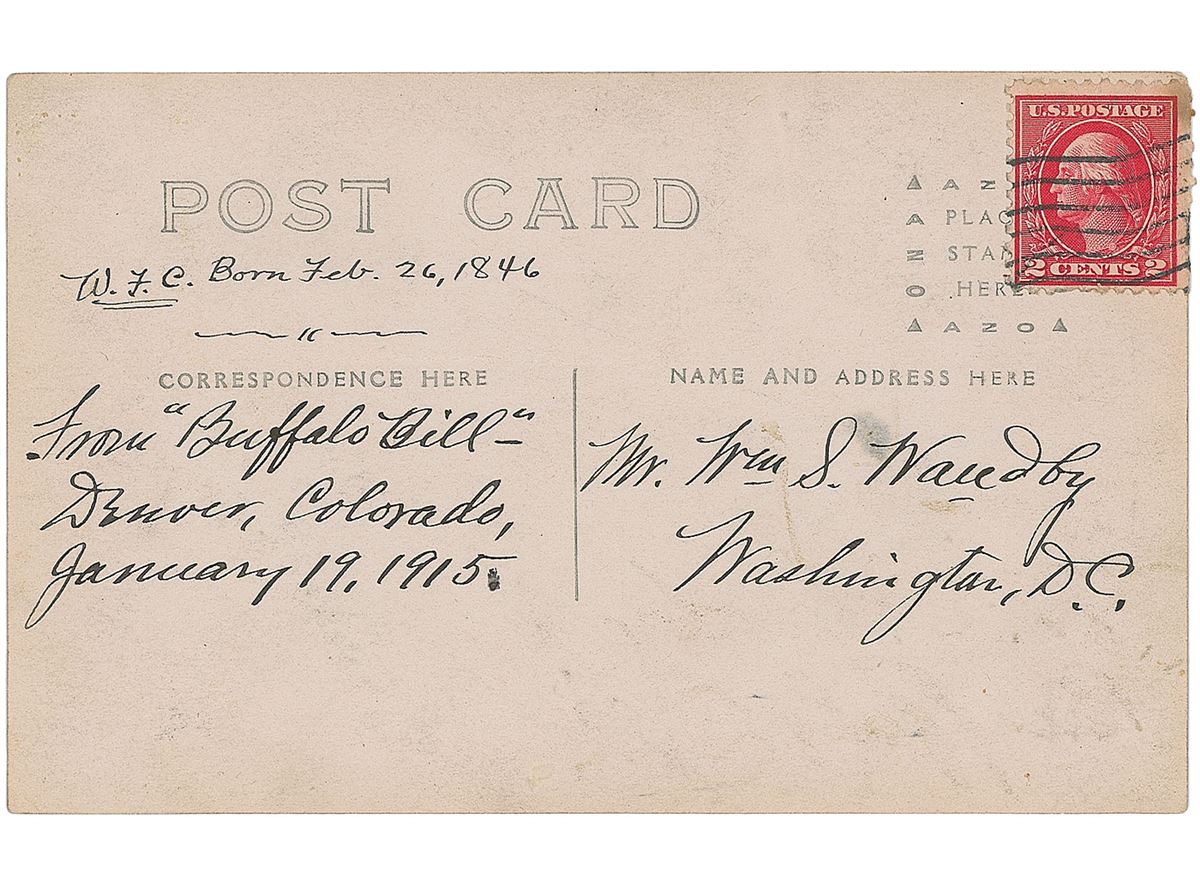 U.S.POSTAGE
2 CENTS 2
POST CARD
W. F. C. Born Feb. 26, 1846
CORRESPONDENCE HERE
From "Buffalo Bill"-
Denver, Colorado,
January 19, 1915.
▲ A Z
A PLAC
N STAM
O HERE
▲ A Z O ▲
NAME AND ADDRESS HERE
Mr. Wm S. Waudby
Washington, D.C.